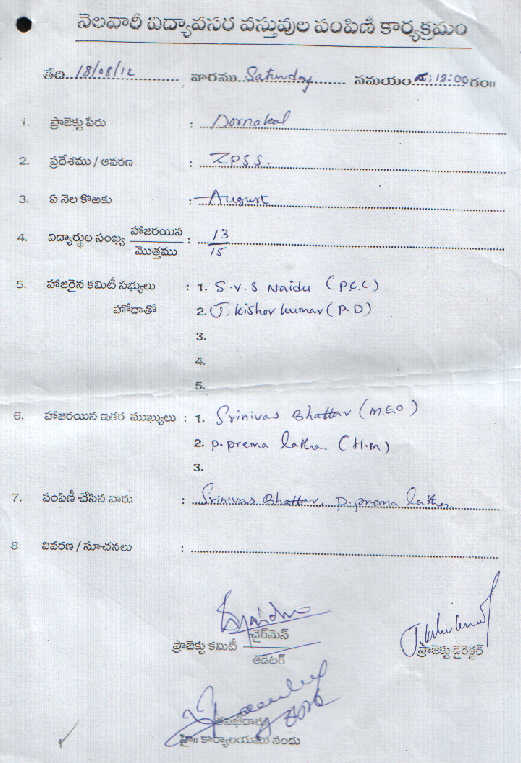 నెలవారీ విద్యావసర వస్తువుల పంపిణీ కార్యక్రమం
తేది. 18/08/12 వారము Saturday సమయం 12:00 గం॥
1. ప్రాజెక్టు పేరు : Dornakal
2. ప్రదేశము / ఆవరణ : ZPSS.
3. ఏ నెల కొఱకు : August
4. విద్యార్థుల సంఖ్య హాజరయిన / మొత్తము : 13 / 15
5. హాజరైన కమిటీ సభ్యులు : 1. S.V.S Naidu (P.C.C)
హోదాతో 2. J. Kishor kumar (P.D)
3.
4.
5.
6. హాజరయిన ఇతర ముఖ్యులు : 1. Srinivas Bhattar (MEO)
2. P. prema latha (H.M)
3.
7. పంపిణీ చేసిన వారు : Srinivas Bhattar, P.prema latha
8 వివరణ / సూచనలు :
ప్రాజెక్టు కమిటీ చైర్‌మెన్
ఆడిటర్
ప్రాజెక్టు డైరెక్టర్